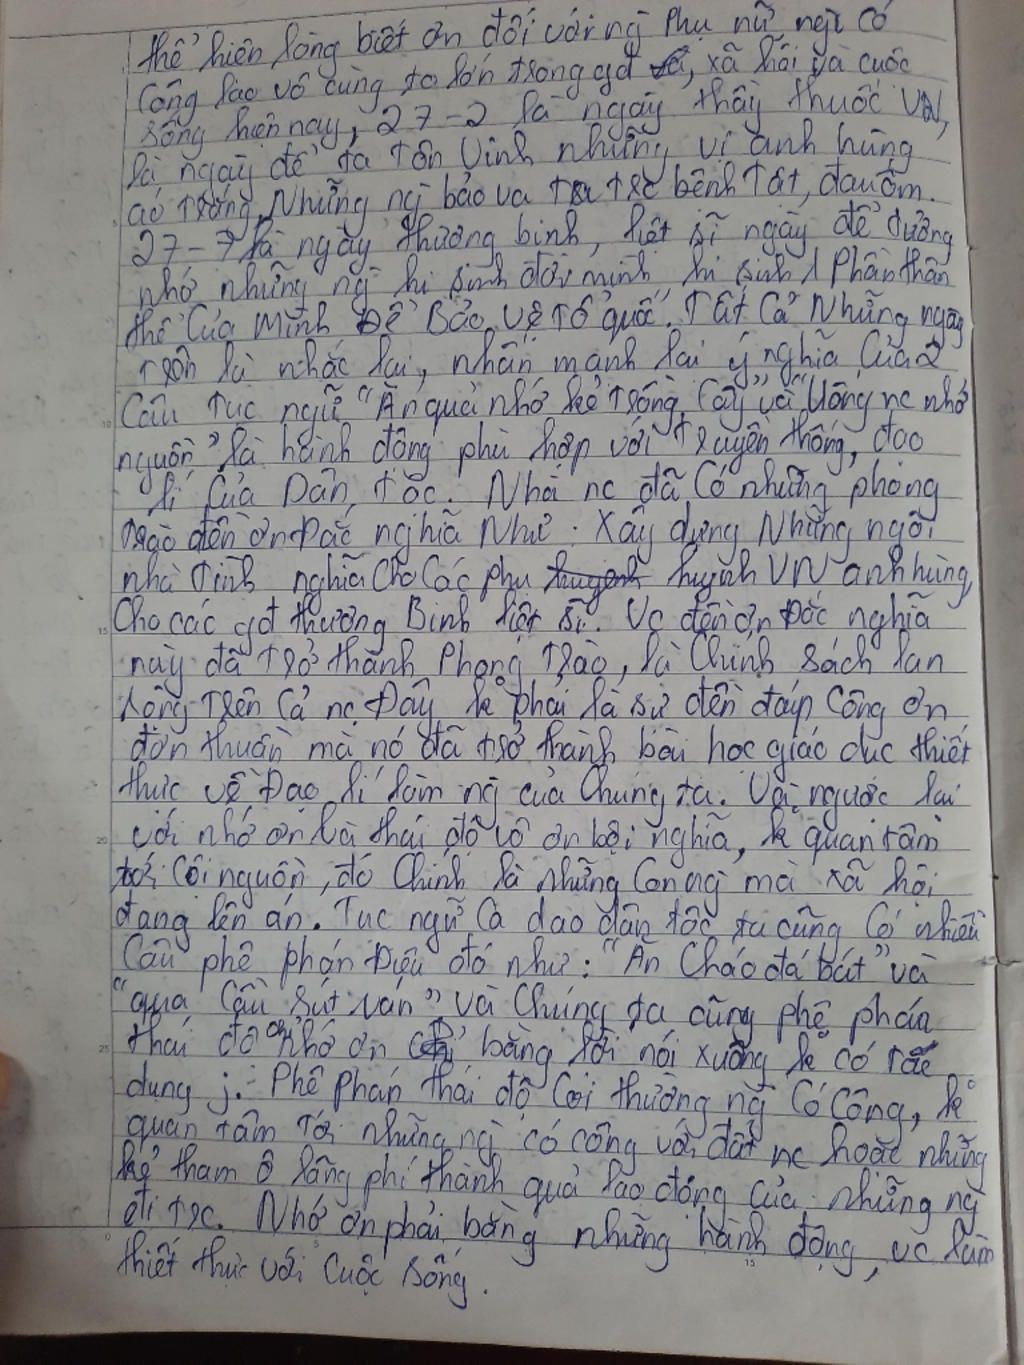 thể hiện lòng biết ơn đối với ng phụ nữ ngì có
công lao vô cùng to lớn trong gđ, xã hội và cuộc
sống hiện nay, 27-2 là ngày thầy thuốc VN,
là ngày để ta tôn vinh những vị anh hùng
áo trắng, những ng bảo va trừ bệnh tật, đau ốm.
27-7 là ngày thương binh, liệt sĩ ngày để tưởng
nhớ những ng hi sinh đời mình hi sinh 1 phần thân
thể của mình để bảo vệ tổ quốc. Tất cả những ngày
trên là nhắc lại, nhấn mạnh lại ý nghĩa của 2
câu tục ngữ "Ăn quả nhớ kẻ trồng cây" và "Uống nc nhớ
nguồn" là hành động phù hợp với truyền thống, đạo
lí của dân tộc. Nhà nc đã có những phong
trào đền ơn đắc nghĩa như: Xây dựng những ngôi
nhà tình nghĩa cho các phụ huỳnh VN anh hùng,
cho các gđ thương binh liệt sĩ. Vc đền ơn đắc nghĩa
này đã trở thành phong trào, là chính sách lan
rộng trên cả nc. Đây k phải là sự đền đáp công ơn
đơn thuần mà nó đã trở thành bài học giáo dục thiết
thực về đạo lí làm ng của chúng ta. Và ngược lại
với nhớ ơn là thái độ vô ơn bội nghĩa, k quan tâm
tới cội nguồn, đó chính là những con ng mà xã hội
đang lên án. Tục ngữ ca dao dân tộc ta cũng có nhiều
câu phê phán điều đó như: "Ăn cháo đá bát" và
"qua cầu sút ván" và chúng ta cũng phê phán
thái độ nhớ ơn chỉ bằng lời nói xuông k có tác
dụng j. Phê phán thái độ coi thường ng có công, k
quan tâm tới những ng có công với đất nc hoặc những
kẻ tham ô lãng phí thành quả lao động của những ng
đi trc. Nhớ ơn phải bằng những hành động, vc làm
thiết thực với cuộc sống.